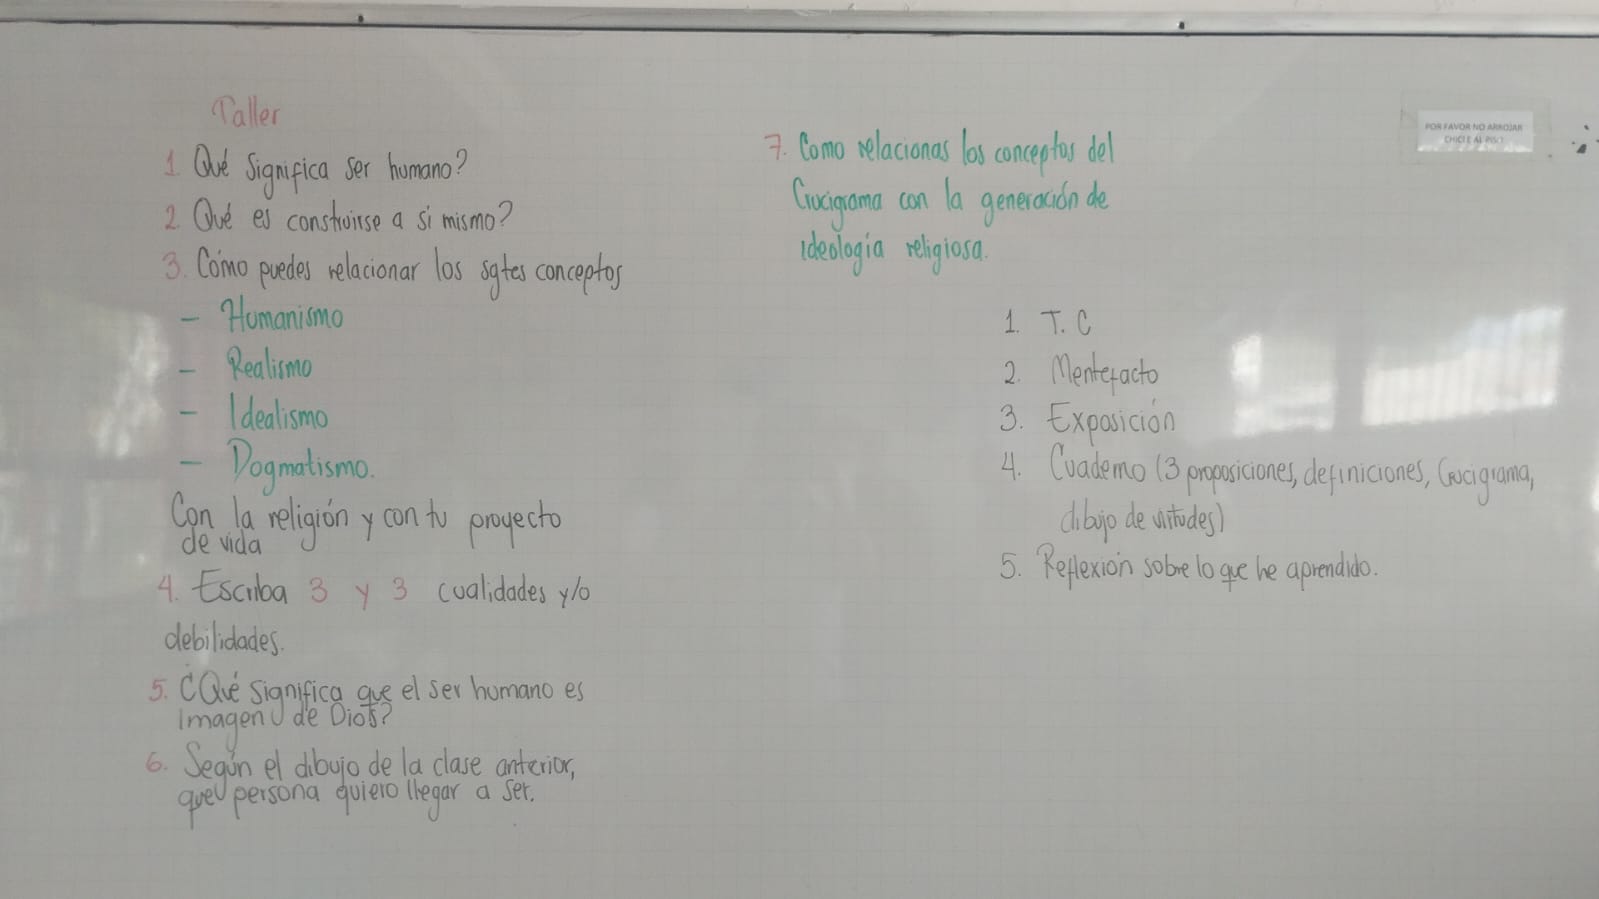 Taller
1. Qué Significa ser humano?
2. Qué es construirse a si mismo?
3. Cómo puedes relacionar los sgtes conceptos
- Humanismo
- Realismo
- Idealismo
- Dogmatismo.
Con la religión y con tu proyecto
de vida
4. Escriba 3 y 3 cualidades y/o
debilidades.
5. ¿Qué significa que el ser humano es
imagen de Dios?
6. Según el dibujo de la clase anterior,
que persona quiero llegar a ser.
7. Como relacionas los conceptos del
Crucigrama con la generación de
ideologia religiosa.
1. T. C
2. Mentefacto
3. Exposición
4. Cuaderno (3 proposiciones, definiciones, Crucigrama,
dibujo de virtudes)
5. Reflexión sobre lo que he aprendido.
POR FAVOR NO ARROJAR
CHICLE AL PISO